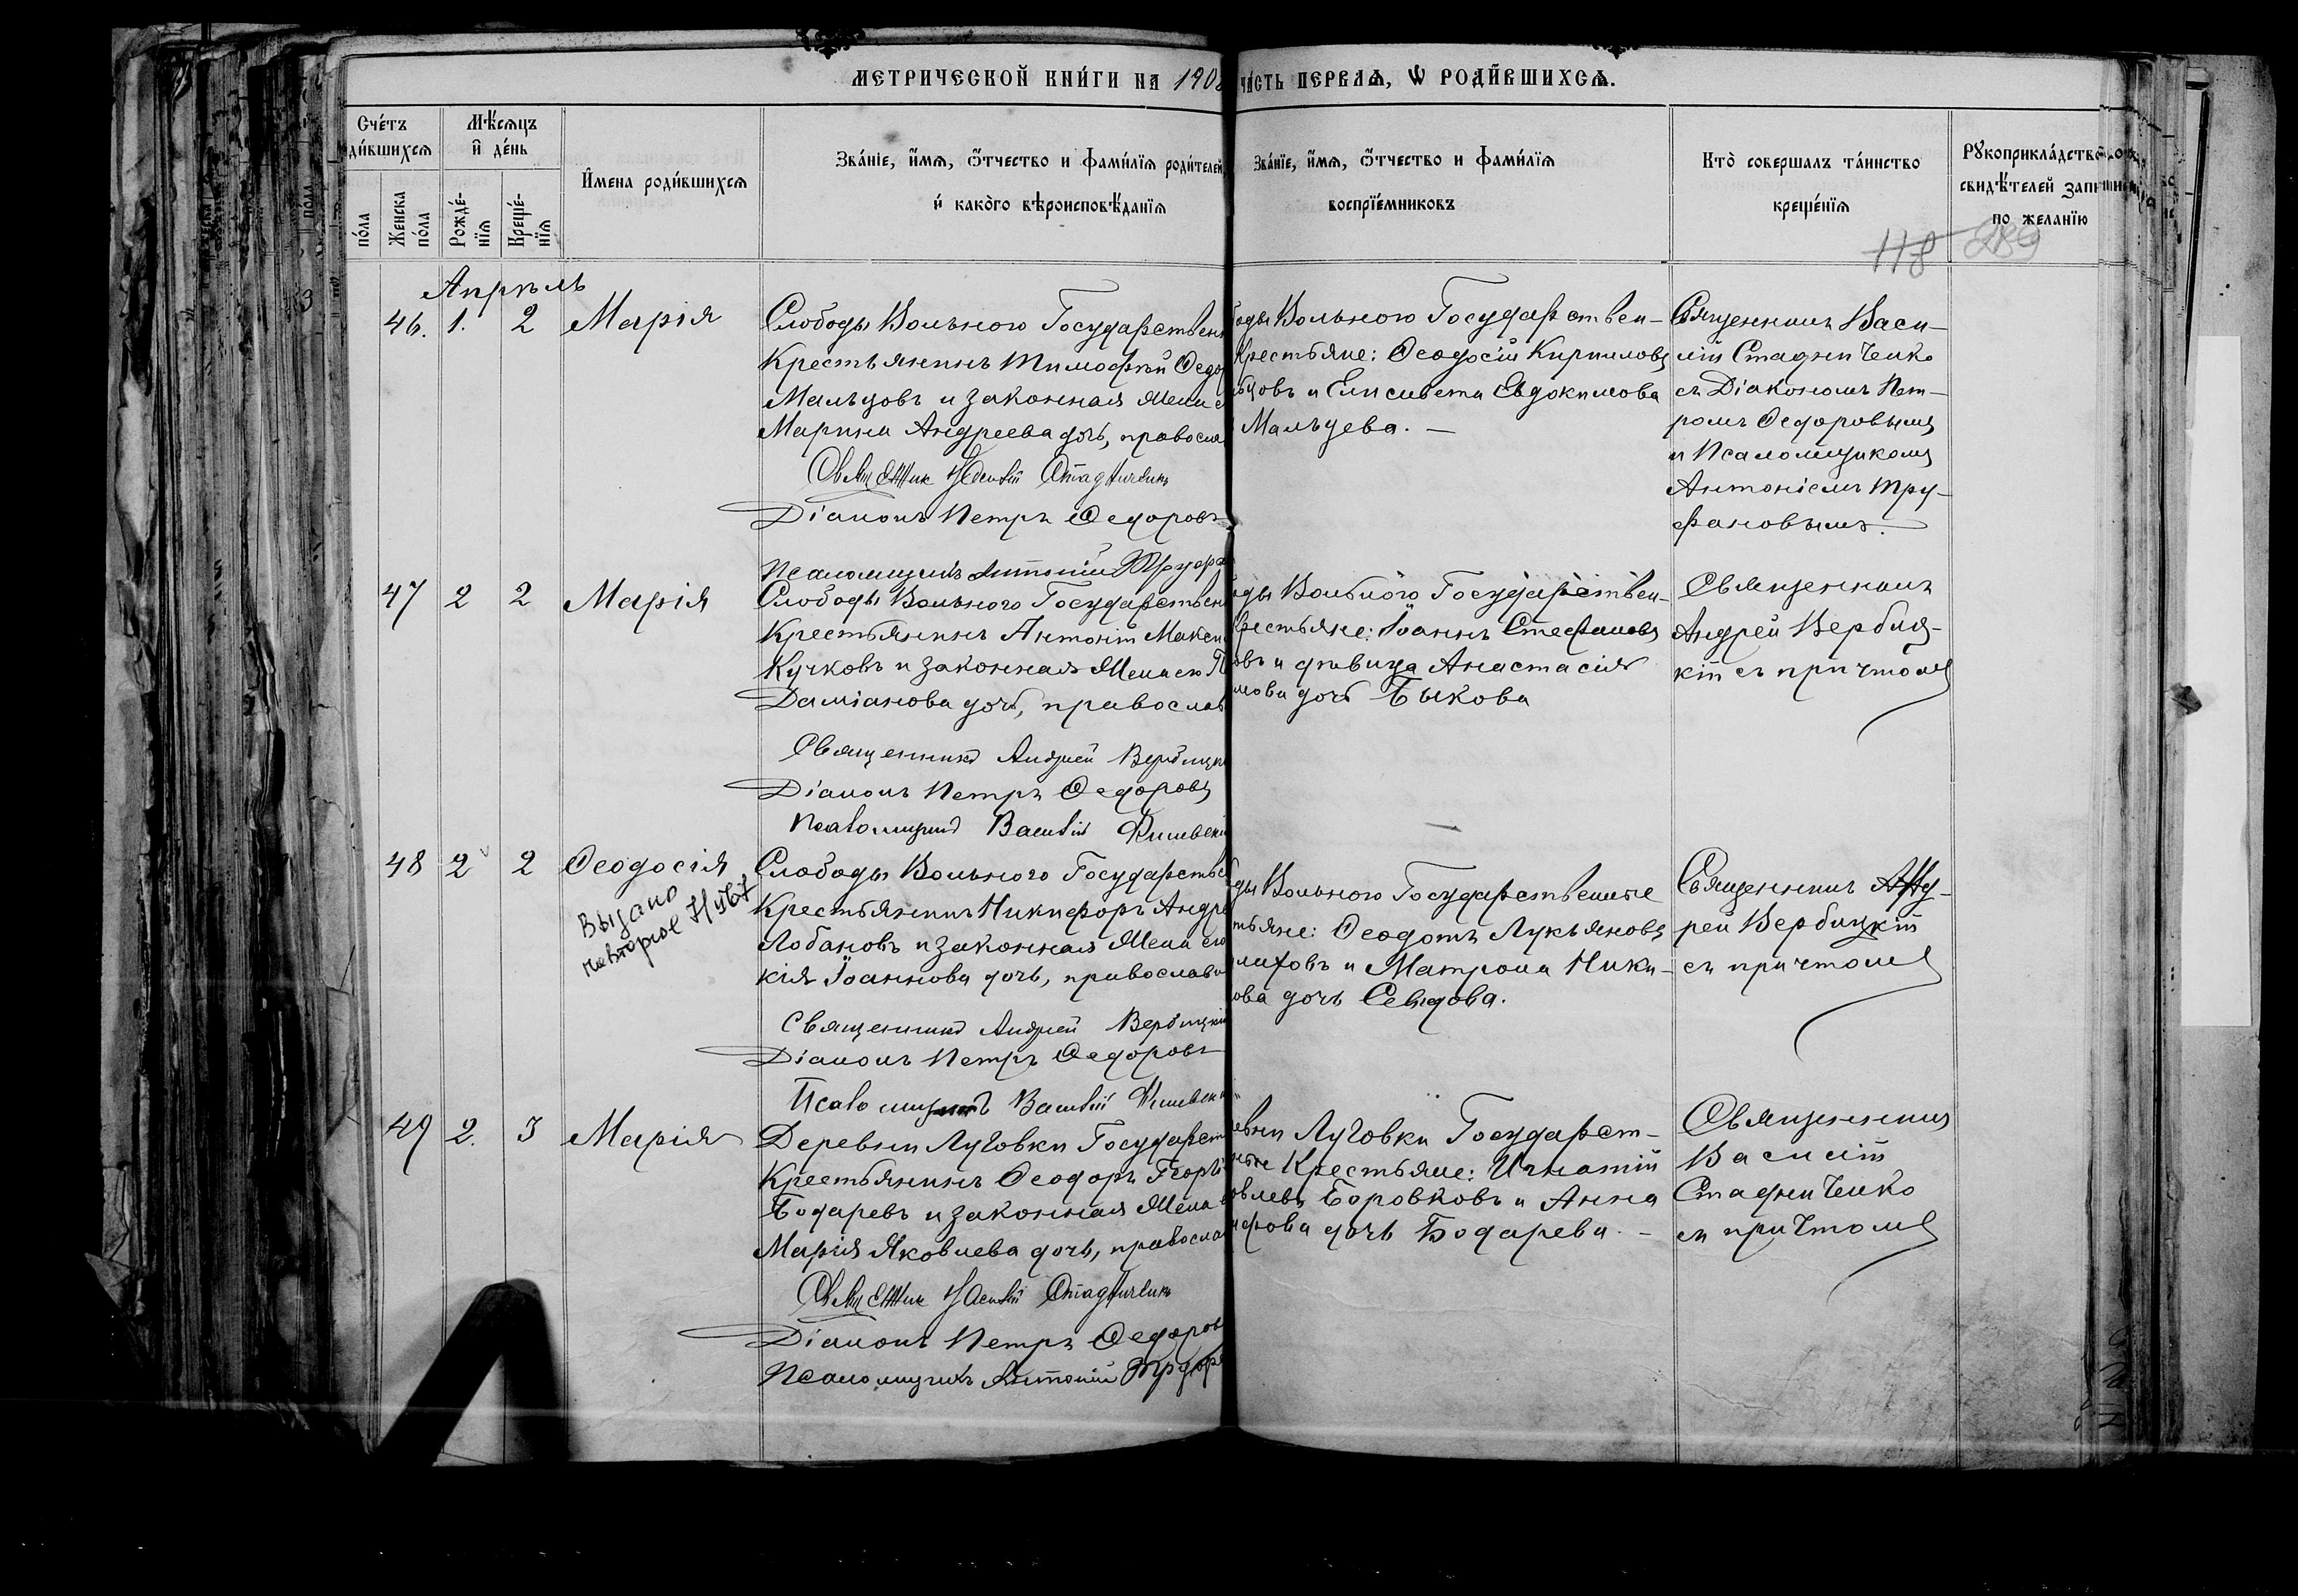 МЕТРИЧЕСКОЙ КНИ́ГИ НА 1902
ЧА́СТЬ ПЕРВАѦ, Ѡ РОДИ́ВШИХСѦ.
Сче́тъ
ди́вшихсѧ
по́ла
Женска
по́ла
Мѣ́сѧцъ
и҆ де́нь
Рожде́-
нїѧ
Креще́-
нїѧ
И҆мена роди́вшихсѧ
Зва́нїе, и҆́мѧ, ѻ҆́тчество и Фами́лїѧ роди́телей,
и҆ како́го вѣроисповѣ́данїѧ
Зва́нїе, и҆́мѧ, ѻ҆́тчество и Фами́лїѧ
воспрїе́мниковъ
Кто̀ соверша́лъ та́инство
креще́нїѧ
Рꙋкоприкла́дство
свидѣ́телей запи
по жела́нїю
118 289
Апрѣль
46. 1. 2 Марія
Слободы Вольного Государствен
Крестьянинъ Тимофей Федо
Мальцовъ и законная жена е
Марина Андреева дочь, правосла
Священник Василій Стадниченко
Діаконъ Петръ Федоровъ
Псаломщикъ Антоній Труфа
оды Вольного Государствен-
Крестьяне: Феодосій Кирилловъ
ьцовъ и Елисавета Евдокимова
Мальцева. —
Священникъ Васи-
лій Стадниченко
съ Діакономъ Пет-
ромъ Федоровымъ
и Псаломщикомъ
Антоніемъ Тру-
фановымъ.
47 2 2 Марія
Слободы Вольного Государствен
Крестьянинъ Антоній Макси
Кучковъ и законная жена его П
Даміанова дочь, православ
Священникъ Андрей Вербицкі
Діаконъ Петръ Федоровъ
Псаломщикъ Василій
оды Вольного Государствен-
Крестьяне: Іоаннъ Стефановъ
овъ и дѣвица Анастасія
мова дочь Быкова
Священникъ
Андрей Вербиц-
кій съ причтомъ
48 2 2 Феодосія
Выдано
повторное
Слободы Вольного Государстве
Крестьянинъ Никифоръ Андре
Лобановъ и законная жена его
кія Іоаннова дочь, православн
Священникъ Андрей Вербицкій
Діаконъ Петръ Федоровъ
Псаломщикъ Василій
ды Вольного Государственные
тьяне: Феодотъ Лукьяновъ
и Матрона Ники-
ова дочь
Священникъ Анд-
рей Вербицкій
съ причтомъ
49 2. 3 Марія
Деревни Луговки Государст
Крестьянинъ Феодоръ Георгі
Бодаревъ и законная жена е
Марія Яковлева дочь, правосла
Священник Василій Стадниченко
Діаконъ Петръ Федоров
Псаломщикъ Антоній Труфа
евни Луговки Государст-
ные Крестьяне: Игнатій
овлевъ Боровковъ и Анна
дорова дочь Бодарева. —
Священникъ
Василій
Стадниченко
съ причтомъ